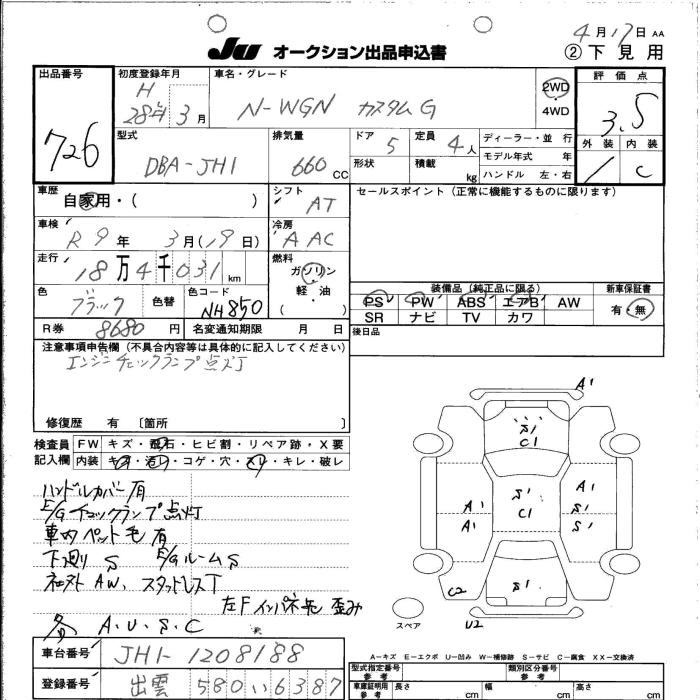 4月17日 AA
JU オークション出品申込書
② 下見用
出品番号
726
初度登録年月
H
28年 3月
車名・グレード
N-WGN カスタム G
2WD
・
4WD
評価点
3.5
外装 内装
1 C
型式
DBA-JH1
排気量
660 CC
ドア 5
形状
定員 4人
積載 kg
ディーラー・並行
モデル年式 年
ハンドル 左・右
車歴
自家用・( )
シフト
AT
セールスポイント(正常に機能するものに限ります)
車検
R 9年 3月(19日)
冷房
AAC
走行
18万4千031 km
燃料
ガソリン
軽・油
( )
色
ブラック
色替
色コード
NH850
装備品(純正品に限る)
PS PW ABS エアB AW
SR ナビ TV カワ
新車保証書
有・無
R券 8680円
名変通知期限 月 日
後日品
注意事項申告欄(不具合内容等は具体的に記入してください)
エンジンチェックランプ点灯
修復歴 有 〔箇所 〕
検査員
記入欄
FW キズ・飛石・ヒビ割・リペア跡・X要
内装 キズ・汚れ・コゲ・穴・スレ・キレ・破レ
ハンドルカバー有
E/Gチェックランプ点灯
車内ペット毛有
下廻り S E/GルームS
社外AW、スタットレスT
左Fインパネ先 歪み
各 A.U.S.C
A1
S1
C1
A1
A1
S1
C1
A1
S1
S1
S1
C2
U2
スペア
A-キズ E-エクボ U-凹み W-補修跡 S-サビ C-腐食 XX-交換済
車台番号 JH1-1208188
登録番号 出雲 580 い 6387
型式指定番号
参考
類別区分番号
参考
車庫証明用
参考
長さ cm
幅 cm
高さ cm